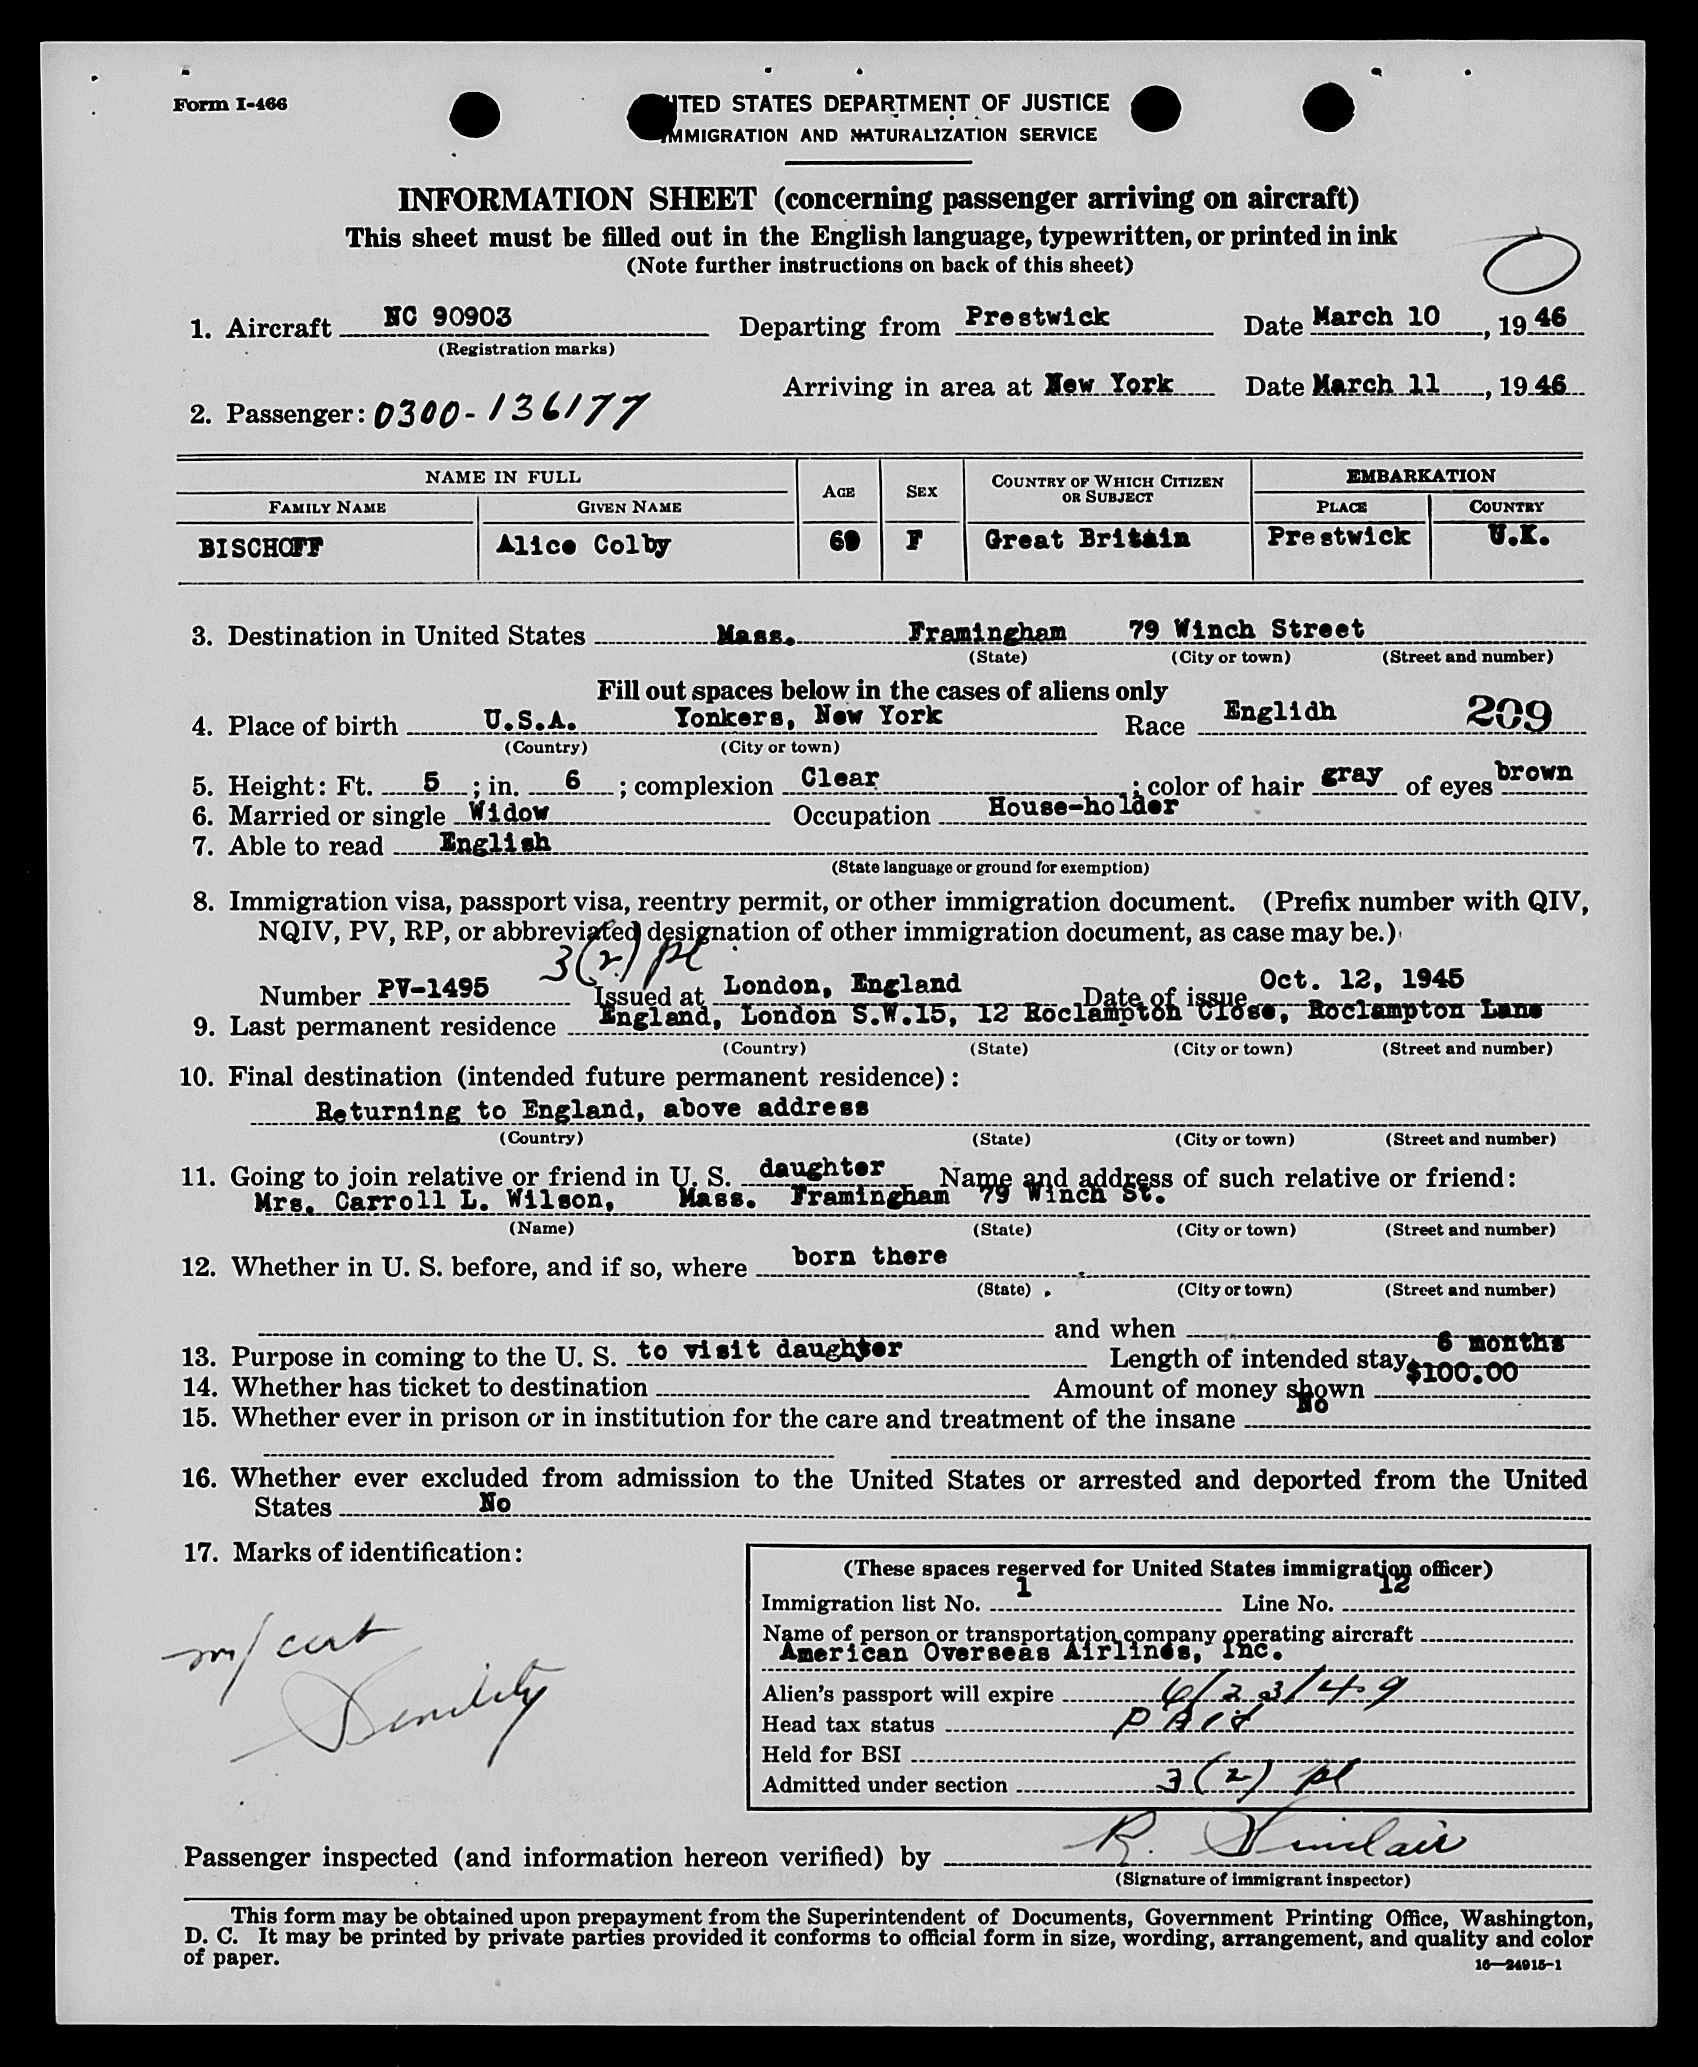 Form I-466
ITED STATES DEPARTMENT OF JUSTICE
IMMIGRATION AND NATURALIZATION SERVICE
INFORMATION SHEET (concerning passenger arriving on aircraft)
This sheet must be filled out in the English language, typewritten, or printed in ink
(Note further instructions on back of this sheet)
1. Aircraft NC 90903 Departing from Prestwick Date March 10, 1946
(Registration marks)
Arriving in area at New York Date March 11, 1946
2. Passenger: 0300-136177
NAME IN FULL AGE SEX COUNTRY OF WHICH CITIZEN OR SUBJECT EMBARKATION
FAMILY NAME GIVEN NAME PLACE COUNTRY
BISCHOFF Alice Colby 69 F Great Britain Prestwick U.K.
3. Destination in United States Mass. Framingham 79 Winch Street
(State) (City or town) (Street and number)
Fill out spaces below in the cases of aliens only
4. Place of birth U.S.A. Yonkers, New York Race Englidh 209
(Country) (City or town)
5. Height: Ft. 5 ; in. 6 ; complexion Clear ; color of hair gray of eyes brown
6. Married or single Widow Occupation House-holder
7. Able to read English
(State language or ground for exemption)
8. Immigration visa, passport visa, reentry permit, or other immigration document. (Prefix number with QIV,
NQIV, PV, RP, or abbreviated designation of other immigration document, as case may be.)
3(2) pl
Number PV-1495 Issued at London, England Date of issue Oct. 12, 1945
9. Last permanent residence England, London S.W.15, 12 Roclampton Close, Roclampton Lane
(Country) (State) (City or town) (Street and number)
10. Final destination (intended future permanent residence):
Returning to England, above address
(Country) (State) (City or town) (Street and number)
11. Going to join relative or friend in U. S. daughter Name and address of such relative or friend:
Mrs. Carroll L. Wilson, Mass. Framingham 79 Winch St.
(Name) (State) (City or town) (Street and number)
12. Whether in U. S. before, and if so, where born there
(State) (City or town) (Street and number)
and when
13. Purpose in coming to the U. S. to visit daughter Length of intended stay 6 months
14. Whether has ticket to destination Amount of money shown $100.00
15. Whether ever in prison or in institution for the care and treatment of the insane No
16. Whether ever excluded from admission to the United States or arrested and deported from the United
States No
17. Marks of identification:
m/ cert
Senility
(These spaces reserved for United States immigration officer)
Immigration list No. 1 Line No. 12
Name of person or transportation company operating aircraft
American Overseas Airlines, Inc.
Alien's passport will expire 6/23/49
Head tax status PAid
Held for BSI
Admitted under section 3(2) pl
Passenger inspected (and information hereon verified) by R. Sinclair
(Signature of immigrant inspector)
This form may be obtained upon prepayment from the Superintendent of Documents, Government Printing Office, Washington,
D. C. It may be printed by private parties provided it conforms to official form in size, wording, arrangement, and quality and color
of paper.
16—24915-1